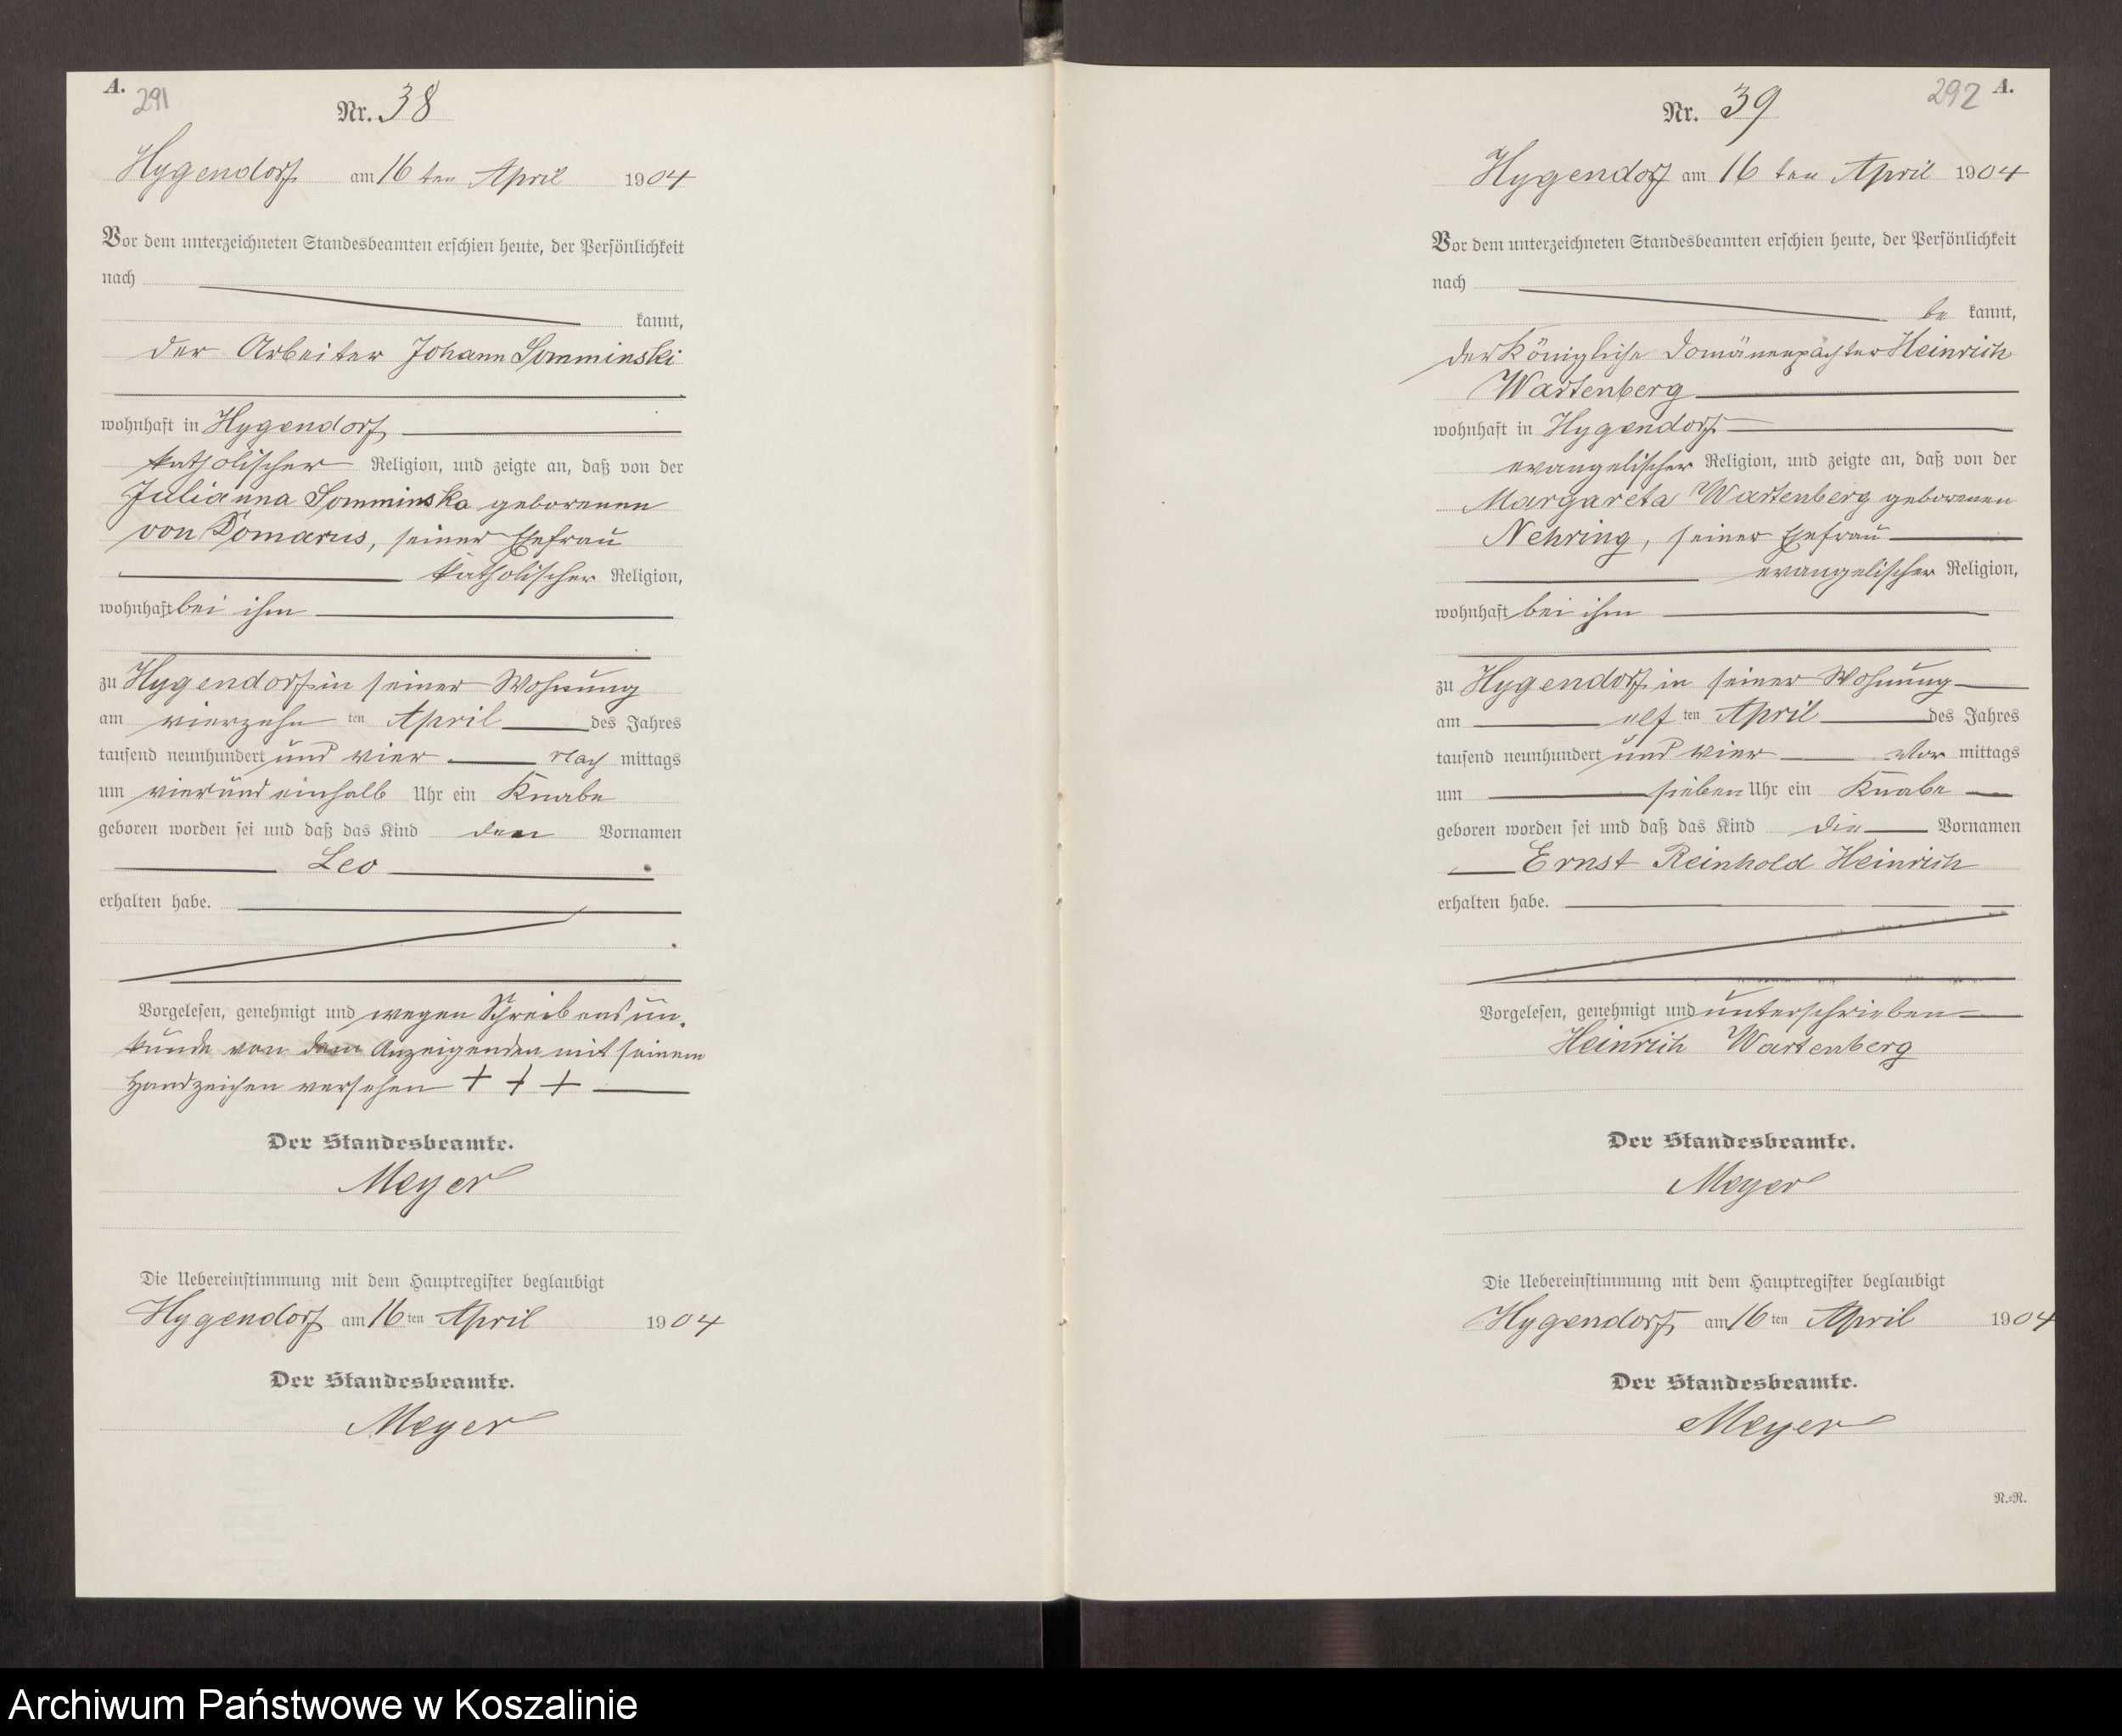 A.
291
Nr. 38
Hygendorf am 16 ten April 1904
Vor dem unterzeichneten Standesbeamten erschien heute, der Persönlichkeit
nach
kannt,
der Arbeiter Johann Somminski
wohnhaft in Hygendorf
katholischer Religion, und zeigte an, daß von der
Julianna Somminska geborenen
von Domarus, seiner Ehefrau
katholischer Religion,
wohnhaft bei ihm
zu Hygendorf in seiner Wohnung
am vierzehn ten April des Jahres
tausend neunhundert und vier Nach mittags
um vier und einhalb Uhr ein Knabe
geboren worden sei und daß das Kind den Vornamen
Leo
erhalten habe.
Vorgelesen, genehmigt und wegen Schreibensun-
kunde von dem Anzeigenden mit seinem
Handzeichen versehen + + +
Der Standesbeamte.
Meyer
Die Uebereinstimmung mit dem Hauptregister beglaubigt
Hygendorf am 16 ten April 1904
Der Standesbeamte.
Meyer
292 A.
Nr. 39
Hygendorf am 16 ten April 1904
Vor dem unterzeichneten Standesbeamten erschien heute, der Persönlichkeit
nach
be kannt,
der Königliche Domänenpächter Heinrich
Wartenberg
wohnhaft in Hygendorf
evangelischer Religion, und zeigte an, daß von der
Margareta Wartenberg geborenen
Nehring, seiner Ehefrau
evangelischer Religion,
wohnhaft bei ihm
zu Hygendorf in seiner Wohnung
am elf ten April des Jahres
tausend neunhundert und vier Vor mittags
um sieben Uhr ein Knabe
geboren worden sei und daß das Kind die Vornamen
Ernst Reinhold Heinrich
erhalten habe.
Vorgelesen, genehmigt und unterschrieben
Heinrich Wartenberg
Der Standesbeamte.
Meyer
Die Uebereinstimmung mit dem Hauptregister beglaubigt
Hygendorf am 16 ten April 1904
Der Standesbeamte.
Meyer
N.-R.
Archiwum Państwowe w Koszalinie